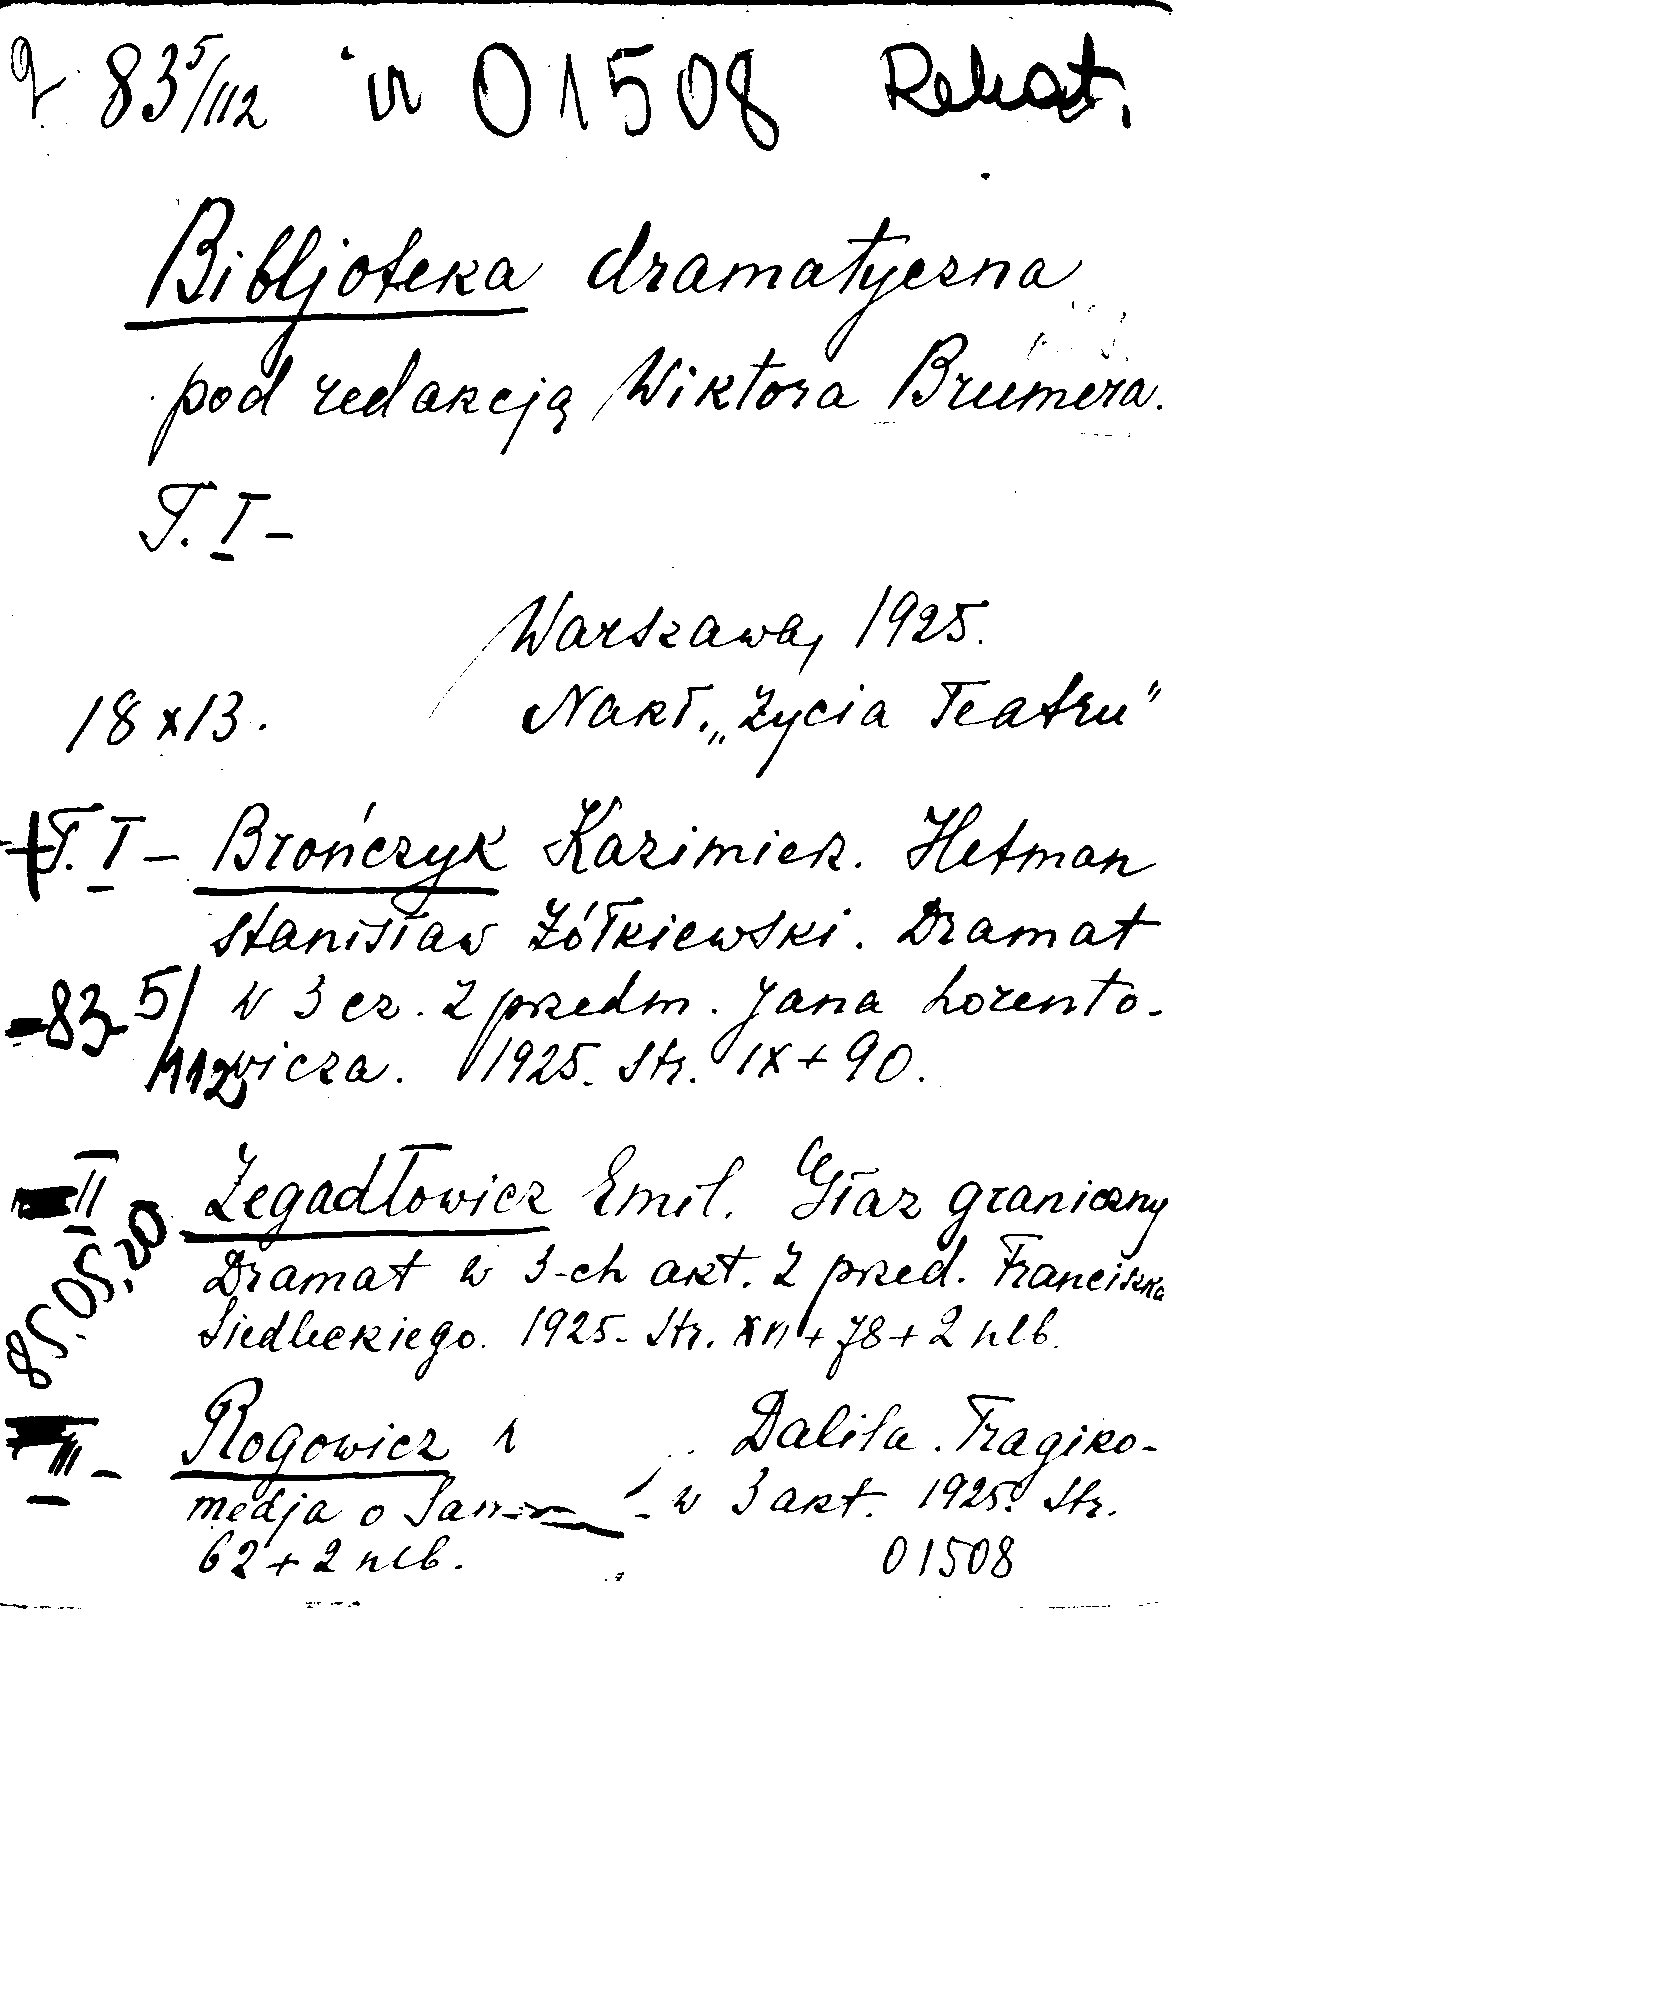 83 5/112 w 01508 Rekat.
Bibljoteka dramatyczna
pod redakcją Wiktora Brumera.
T. I –
Warszawa, 1925.
18 x 13. Nakł. „Życia Teatru”
T. I – Brończyk Kazimierz. Hetman
Stanisław Żółkiewski. Dramat
83 5/112 w 3 cz. Z przedm. Jana Lorento-
wicza. 1925. Str. IX + 90.
II Zegadłowicz Emil. Głaz graniczny
Dramat w 3-ch akt. Z przed. Franciszka
Siedleckiego. 1925. Str. XII + 78 + 2 nlb.
85.05.20
III – Rogowicz Dalila. Tragiko-
medja o w 3 akt. 1925. Str.
62 + 2 nlb. 01508